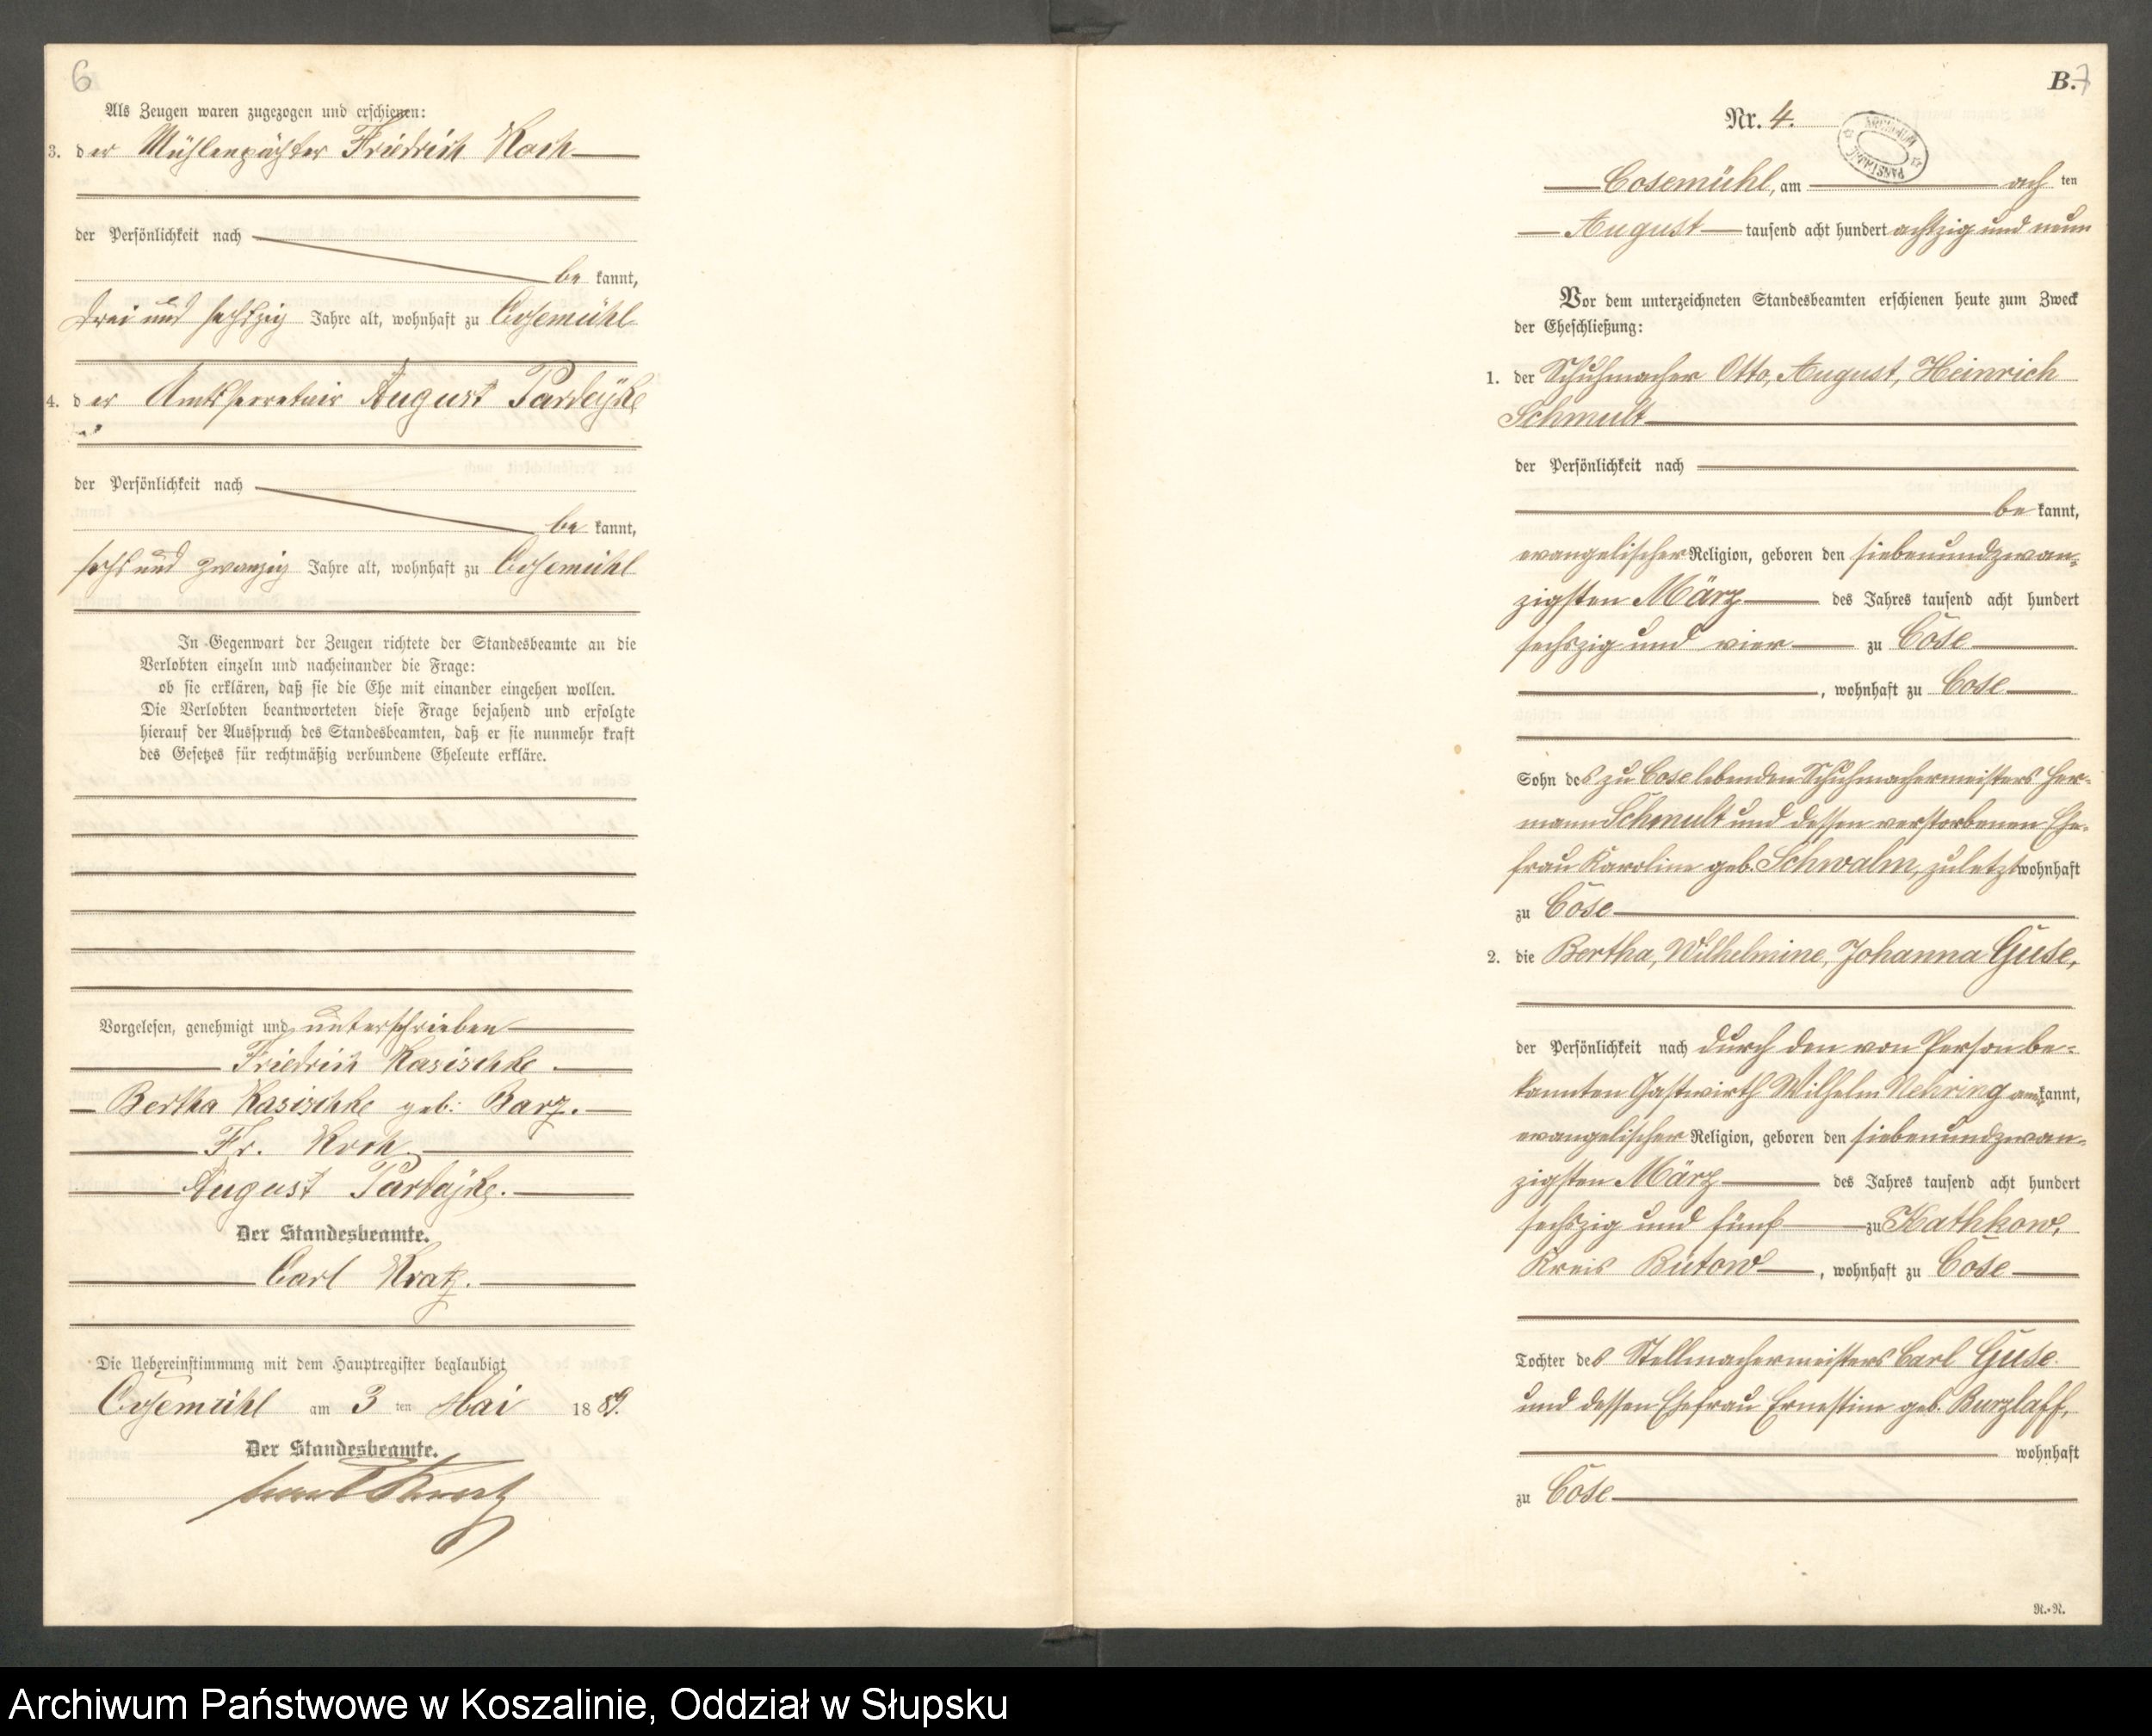 6
Als Zeugen waren zugezogen und erschienen:
3. der Mühlenpächter Friedrich Koch
der Persönlichkeit nach
be kannt,
drei und sechszig Jahre alt, wohnhaft zu Cosemühl
4. der Amtssecretair August
der Persönlichkeit nach
be kannt,
sechs und zwanzig Jahre alt, wohnhaft zu Cosemühl
In Gegenwart der Zeugen richtete der Standesbeamte an die
Verlobten einzeln und nacheinander die Frage:
ob sie erklären, daß sie die Ehe mit einander eingehen wollen.
Die Verlobten beantworteten diese Frage bejahend und erfolgte
hierauf der Ausspruch des Standesbeamten, daß er sie nunmehr kraft
des Gesetzes für rechtmäßig verbundene Eheleute erkläre.
Vorgelesen, genehmigt und unterschrieben
Friedrich Kasischke.
Bertha Kasischke geb: Barz.
Fr. Koch.
August
Der Standesbeamte.
Carl Kratz.
Die Uebereinstimmung mit dem Hauptregister beglaubigt
Cosemühl am 3 ten Mai 1889.
Der Standesbeamte.
Carl Kratz
B. 7
Nr. 4.
ARCHIWUM PAŃSTWOWE
Cosemühl, am ach ten
August tausend acht hundert achtzig und neun
Vor dem unterzeichneten Standesbeamten erschienen heute zum Zweck
der Eheschließung:
1. der Schuhmacher Otto, August, Heinrich
Schmult
der Persönlichkeit nach
be kannt,
evangelischer Religion, geboren den siebenundzwan-
zigsten März des Jahres tausend acht hundert
sechszig und vier zu Cose
, wohnhaft zu Cose
Sohn des zu Cose lebenden Schuhmachermeisters Her-
mann Schmult und dessen verstorbenen Ehe-
frau Karoline geb. Schwalm, zuletzt wohnhaft
zu Cose
2. die Bertha, Wilhelmine, Johanna Guse,
der Persönlichkeit nach durch den von Person be-
kannten Gastwirth Wilhelm Nehring aner kannt,
evangelischer Religion, geboren den siebenundzwan-
zigsten März des Jahres tausend acht hundert
sechszig und fünf zu Kathkow,
Kreis Bütow, wohnhaft zu Cose
Tochter des Stellmachermeisters Carl Guse
und dessen Ehefrau Ernestine geb. Burzlaff,
wohnhaft
zu Cose
R.-R.
Archiwum Państwowe w Koszalinie, Oddział w Słupsku